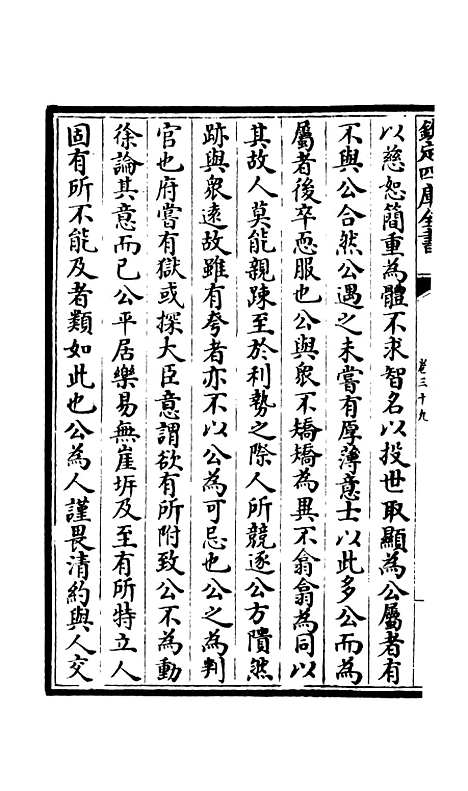 欽定四庫全書
卷三十九
以慈恕簡重為體不求智名以投世取顯為公屬者有
不與公合然公遇之未嘗有厚薄意士以此多公而為
屬者後卒悉服也公與衆不矯矯為異不翕翕為同以
其故人莫能親踈至於利勢之際人所競逐公方隤然
跡與衆遠故雖有夸者亦不以公為可忌也公之為判
官也府嘗有獄或探大臣意謂欲有所附致公不為動
徐論其意而已公平居樂易無崖㟁及至有所特立人
固有所不能及者類如此也公為人謹畏清約與人交